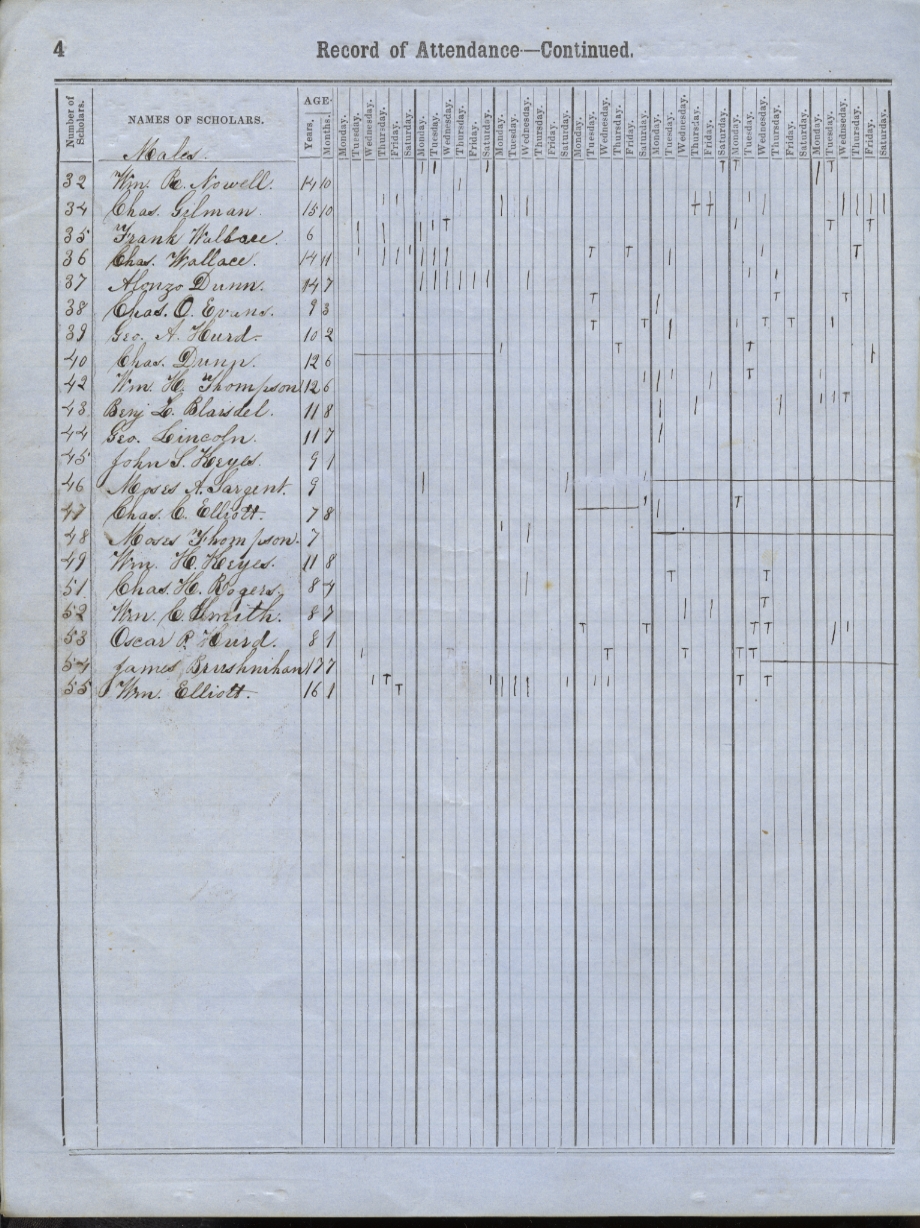 4
Record of Attendance—Continued.
Number of Scholars.
NAMES OF SCHOLARS.
AGE
Years.
Months.
Monday. Tuesday. Wednesday. Thursday. Friday. Saturday. Monday. Tuesday. Wednesday. Thursday. Friday. Saturday. Monday. Tuesday. Wednesday. Thursday. Friday. Saturday. Monday. Tuesday. Wednesday. Thursday. Friday. Saturday. Monday. Tuesday. Wednesday. Thursday. Friday. Saturday. Monday. Tuesday. Wednesday. Thursday. Friday. Saturday. Monday. Tuesday. Wednesday. Thursday. Friday. Saturday.
Males.
32 Wm. R. Nowell. 14 10
34 Chas. Gilman. 15 10
35 Frank Wallace. 6
36 Chas. Wallace. 14 11
37 Alonzo Dunn. 14 7
38 Chas. O. Evans. 9 3
39 Geo. A. Hurd. 10 2
40 Chas. Dunn. 12 6
42 Wm. H. Thompson 12 6
43 Benj L. Blaisdel. 11 8
44 Geo. Lincoln. 11 7
45 John S. Keyes. 9 1
46 Moses A. Sargent. 9
47 Chas. C. Elliott. 7 8
48 Moses Thompson. 7
49 Wm. H. Keyes. 11 8
51 Chas. H. Rogers. 8 4
52 Wm. C. Smith. 8 7
53 Oscar P. Hurd. 8 1
54 James Brushnihan 17 7
55 Wm. Elliott. 16 1